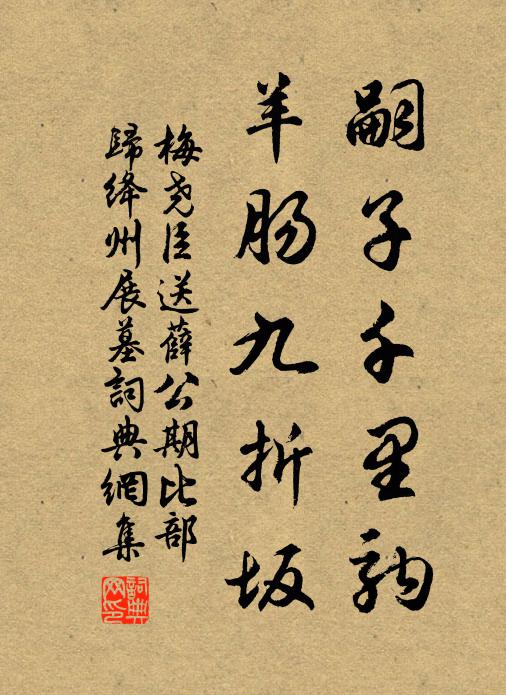 嗣子千里駒
羊肠九折坂
梅尧臣送薛公期比部
歸絳州展墓詞典網集
詞典
网印